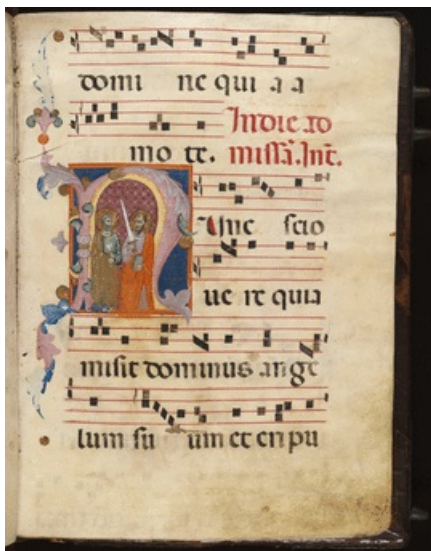 domi ne qui a a
In die ad
mo te. missã. Int.
N unc scio
ue re quia
misit dominus ange
lum su um et eri pu